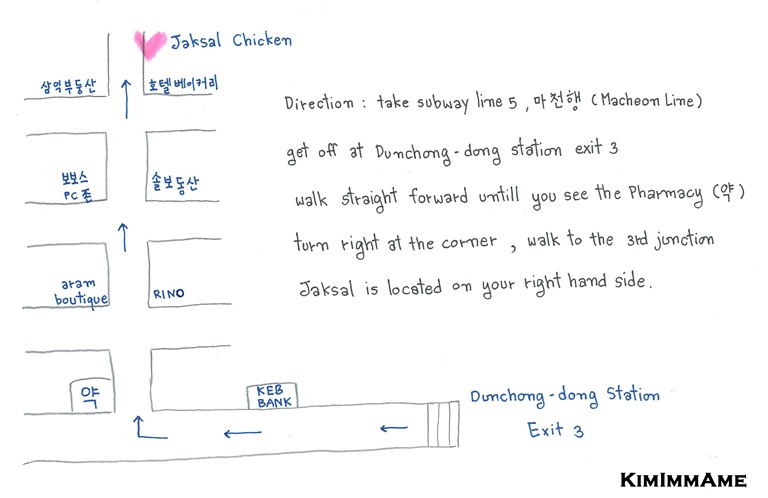 Jaksal Chicken
삼억부동산
호텔베이커리
Direction : take subway line 5 , 마천행 (Macheon Line)
get off at Dunchong-dong station exit 3
walk straight forward untill you see the Pharmacy (약)
turn right at the corner , walk to the 3rd junction
Jaksal is located on your right hand side.
보보스
PC존
솔보동산
aram
boutique
RINO
약
KEB
BANK
Dunchong-dong Station
Exit 3
KimImmAme